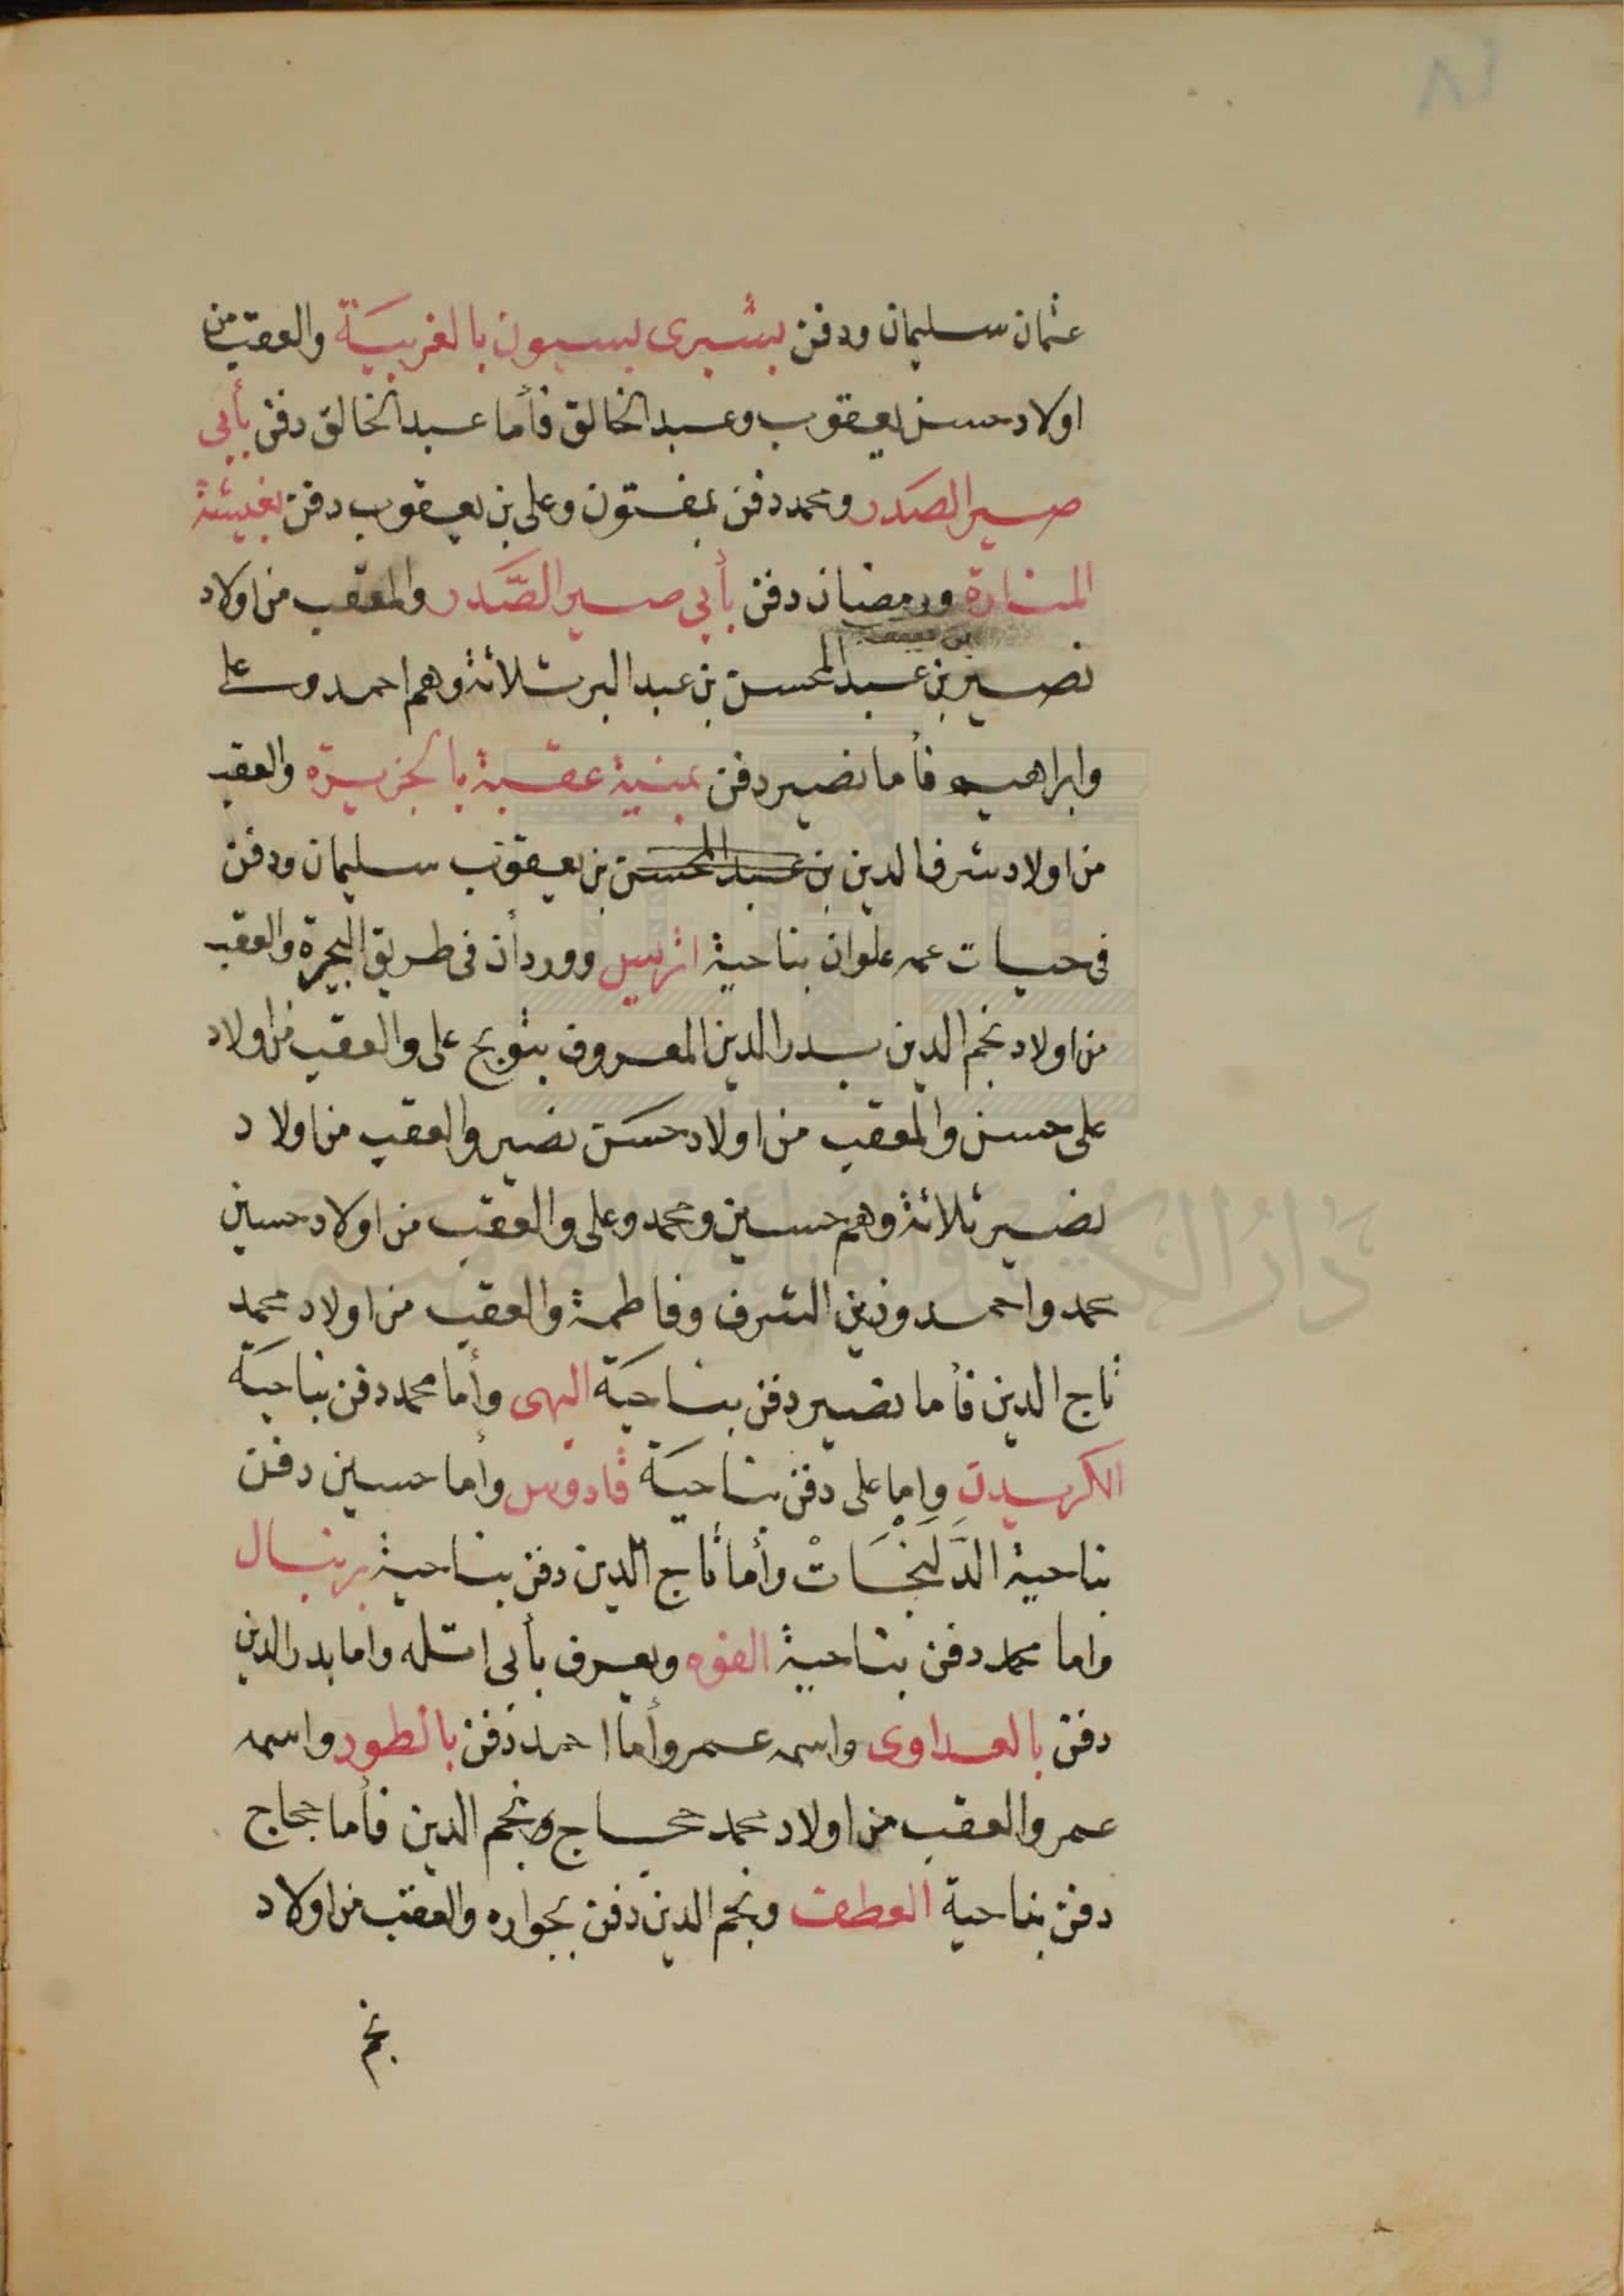 عثمان سليمان ودفن بشبرى بسيون بالغربيَة والعقب من
اولاد حسن يعقوب وعبد الخالق فأما عبد الخالق دفن بأبي
صير الصَدر ومحمد دفن بمفتون وعلى بن يعقوب دفن بغيشة
المنارة ورمضان دفن بأبي صير الصَّدر والمعقب من اولاد
نصير بن عبد المحسن بن عبد البر ثلاثة وهم احمد وعلى
وابراهيم فأما نصير دفن بمنية عقبة بالجزيرة والعقب
من اولاد شرف الدين بن عبد المحسن بن يعقوب سليمان ودفن
فى حيات عمه علوان بناحية اتريس ووردان فى طريق البحيرة والعقب
من اولاد نجم الدين بدر الدين المعروف على والعقب من اولاد
على حسن والمعقب من اولاد حسَن نصير والعقب من اولاد
نصير ثلاثة وهم حسين ومحمد وعلى والعقب من اولاد حسين
محمد واحمد وزين الشرف وفاطمة والعقب من اولاد محمد
تاج الدين فأما نصير دفن بناحيَة البهى وأما محمد دفن بناحيَة
واما على دفن بناحيَة قادوس وأما حسين دفن
بناحية الدَلَنْجَاتْ وأما تاج الدين دفن بناحية برنبال
واما محمد دفن بناحية الفوه ويعرف بأبى اتله واما بدر الدين
دفن بالعداوى واسمه عمر وأما احمد دفن بالطور واسمه
عمر والعقب من اولاد محمد حجاج ونجم الدين فأما حجاج
دفن بناحية العطف ونجم الدين دفن بجواره والعقب من اولاد
نجم
دَارُ الكتب والوثائق القوميَة